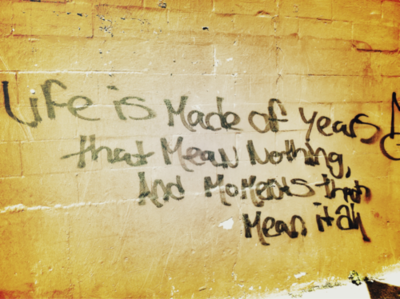 Life is Made of years
that Mean Nothing,
And Moments that
Mean it all